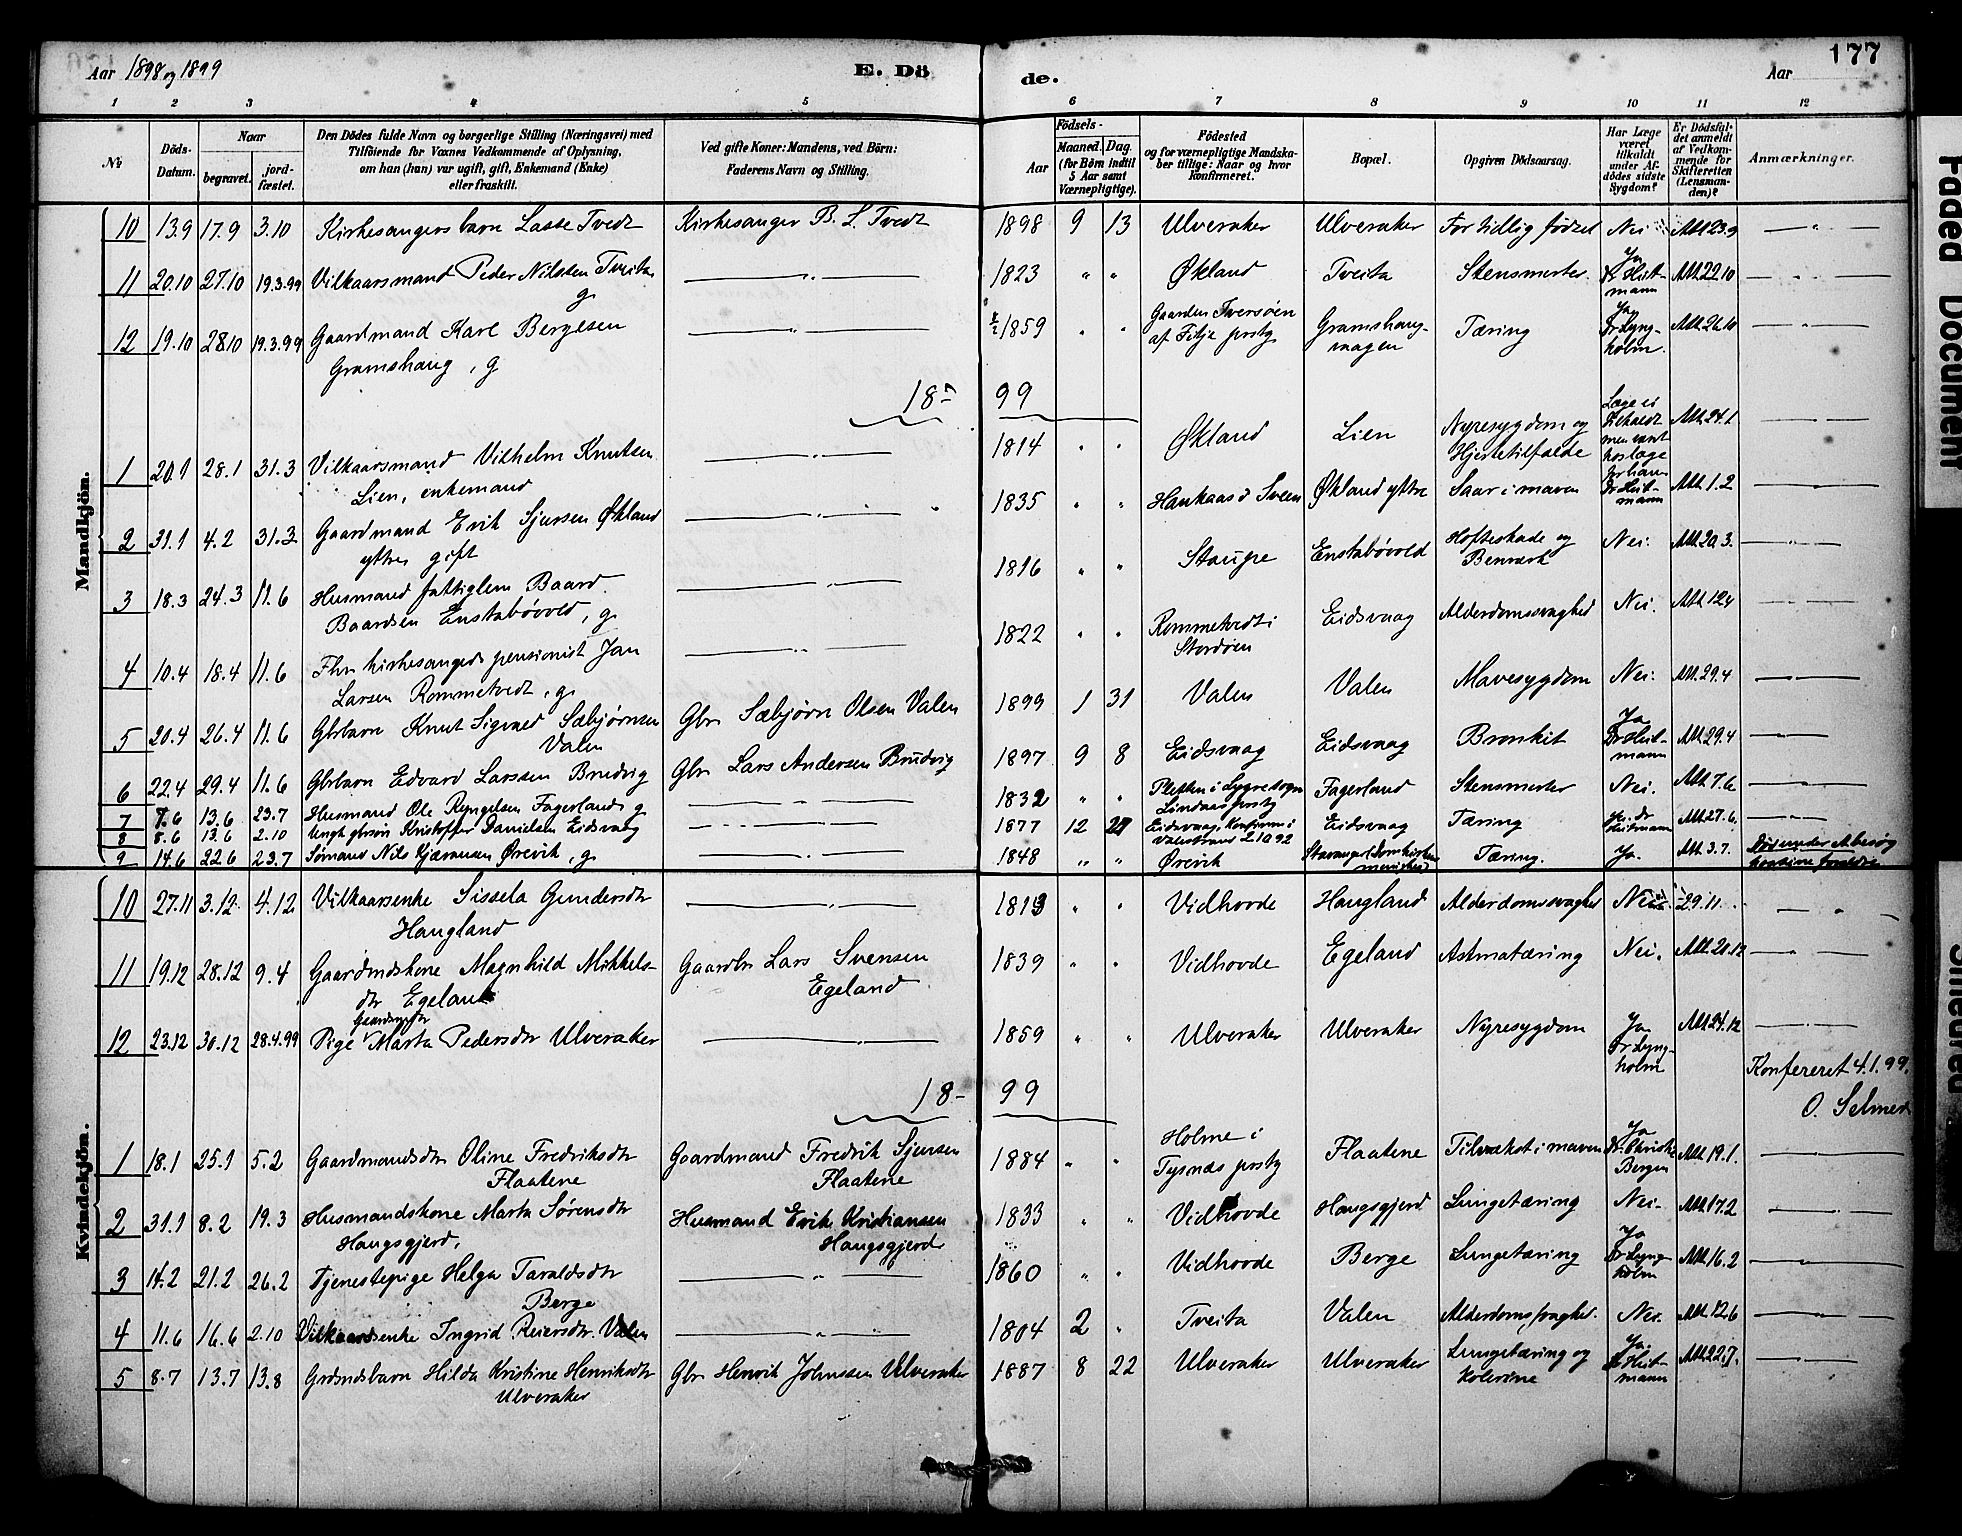 Aar 1898 og 1899
E. Dö
de.
Aar
177
1 2 3 4 5 6 7 8 9 10 11 12
№
Döds-Datum.
Naar
begravet.
jord-fæstet.
Den Dödes fulde Navn og borgerlige Stilling (Næringsvei) med
Tilföiende for Voxnes Vedkommende af Oplysning,
om han (hun) var ugift, gift, Enkemand (Enke)
eller fraskilt.
Ved gifte Koner: Mandens, ved Börn:
Faderens Navn og Stilling.
Födsels-
Aar
Maaned. Dag.
(for Börn indtil
5 Aar samt
Værnepligtige).
Födested
og for værnepligtige Mandska-
ber tillige: Naar og hvor
konfirmeret.
Bopæl.
Opgiven Dödsaarsag.
Har Læge
været
tilkaldt
under Af-
dödes sidste
Sygdom?
Er Dödsfal-
det anmeldt
af Vedkom-
mende for
Skifteretten
(Lensman-
den)?
Anmærkninger.
Mandkjön.
10 13.9 17.9 3.10 Kirkesangers barn Lasse Tvedt Kirkesanger B. L. Tvedt 1898 9 13 Ulveraker Ulveraker For tidlig födsel Nei Att. 23.9
11 20.10 27.10 19.3.99 Vilkaarsmand Peder Nilssen Tveita g. 1823 " " Økland Tveita Stensmerter Ja Dr Heitmann Att. 22.10
12 19.10 28.10 19.3.99 Gaardmand Karl Bergesen
Gramshaug, g 1859 " " Gaarden Tversøen
af Fitje prstg Gramshaug-
vaagen Tæring Ja Dr Lyng-
holm. Att. 26.10
18 99
1 20.1 28.1 31.3 Vilkaarsmand Vilhelm Knutsen
Lien, enkemand 1814 " " Økland Lien Nyresygdom og
Hjertetilfælde Læge ei
tilkaldt
men Att. 24.1
2 31.1 4.2 31.3 Gaardmand Erik Sjursen Økland
yttre gift 1835 " " Haukaas i Sveen Økland yttre Saar i maven Dr Heit-
mann Att. 1.2
3 18.3 24.3 11.6 Husmand fattiglem Baard
Baardsen Enstabøvold, g. 1816 " " Staupe Enstabøvold Hofteskade og
Benværk Nei. Att. 20.3.
4 10.4 18.4 11.6 Fhv kirkesanger pensionist Jan
Larsen Rommetvedt, g. 1822 " " Rommetvedt i
Stordøen Eidsvaag Alderdomssvaghed Nei. Att. 12.4
5 20.4 26.4 11.6 Gbrbarn Knut Sigvald Sæbjørnsen
Valen Gbr Sæbjørn Olsen Valen 1899 1 31 Valen Valen Mavesygdom Nei. Att. 29.4
6 22.4 29.4 11.6 Gbrbarn Edvard Larssen Brudvig Gbr Lars Andersen Brudvig 1897 9 8 Eidsvaag Eidsvaag Bronkit Ja
Dr Heit-
mann Att. 29.4
7 7.6 13.6 23.7 Husmand Ole Fagerland g 1832 " " i Lygre sogn
Lindaas prstg Fagerland Stensmerter Nei. Att. 7.6.
8 8.6 13.6 2.10 Ungk gbrsön Kristoffer Danielsen Eidsvaag 1877 12 Eidsvaag, Konfirm. i
Valestrand 2.10 92 Eidsvaag Tæring Ja. Dr
Heitmann Att. 27.6.
9 14.6 22.6 23.7 Sømand Nils Kjæransen Ørevik, g. 1848 " " Ørevik Stavanger (Domkirkens
menighed) Tæring. Ja. Att. 3.7. Død under et besøg
Kvindekjön.
10 27.11 3.12 4.12 Vilkaarsenke Sissela Gundersdtr
Haugland 1813 " " Vidhovde Haugland Alderdomssvaghed Nei 29.11
11 19.12 28.12 9.4 Gaardmdskone Magnhild Mikkels-
dtr Egeland Gaardbr Lars Svensen
Egeland 1839 " " Vidhovde Egeland Astmatæring Nei. Att. 20.12
12 23.12 30.12 28.4.99 Pige Marta Pedersdtr Ulveraker 1859 " " Ulveraker Ulveraker Nyresygdom Ja
Dr Lyng-
holm Att. 24.12
Konfereret 4.1.99.
O. Selmer
18- 99
1 18.1 25.1 5.2 Gaardmandsdtr Oline Fredriksdtr
Flaatene Gaardmand Fredrik Sjursen
Flaatene 1884 " " Holme i
Tysnæs prstg Flaatene Tilvækst i maven Ja
Dr Christie
Bergen Att. 19.1.
2 31.1 8.2 19.3 Husmandskone Marta Sørensdtr
Haugsgjerd, Husmand Erik Kristiansen
Haugsgjerd 1833 " " Vidhovde Haugsgjerd Lungetæring Nei. Att. 17.2
3 14.2 21.2 26.2 Tjenestepige Helga Taraldsdtr
Berge 1860 " " Vidhovde Berge Lungetæring Ja
Dr Lyng-
holm Att. 16.2
4 11.6 16.6 2.10 Vilkaarsenke Ingrid Reiersdtr. Valen 1804 2 " Tveita Valen Alderdomssvaghed. Nei. Att. 12.6
5 8.7 13.7 13.8 Grdmdsbarn Hilda Kristine Henriksdtr
Ulveraker Gbr Henrik Johnssen Ulveraker 1887 8 22 Ulveraker Ulveraker Lungetæring og
Kolerine Ja.
Dr Heit-
mann Att. 22.7.
Faded Document
Smeared